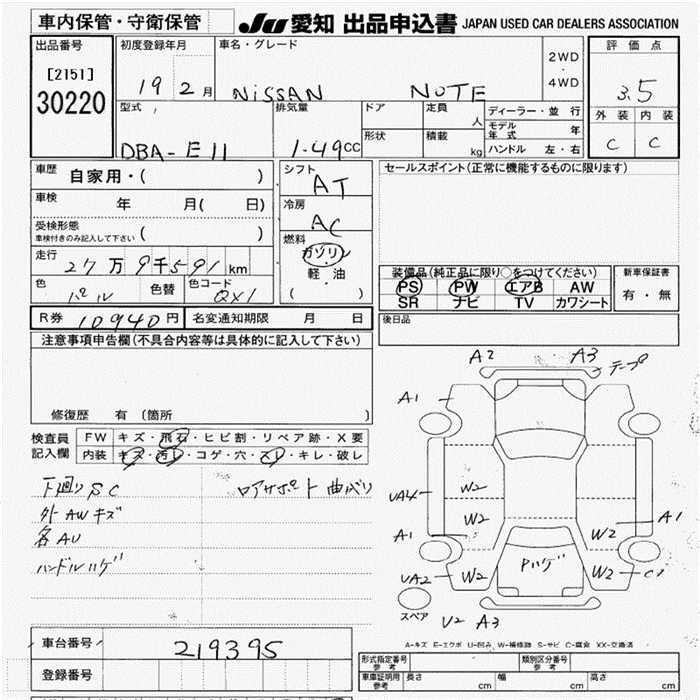 車内保管・守衛保管
JU 愛知 出品申込書 JAPAN USED CAR DEALERS ASSOCIATION
出品番号
[2151]
30220
初度登録年月
19 2 月
車名・グレード
NISSAN NOTE
2WD
・
4WD
評価点
3.5
外装 内装
C C
型式
DBA-E11
排気量
1.49 CC
ドア
形状
定員
人
積載
kg
ディーラー・並行
モデル年式 年
ハンドル 左・右
車歴
自家用・( )
車検
年 月( 日)
受検形態
車検付きのみ記入して下さい ( )
走行
27万9千591 km
色
パール
色替
色コード
QX1
シフト
AT
冷房
AC
燃料
ガソリン
・
軽・油
( )
セールスポイント(正常に機能するものに限ります)
装備品(純正品に限り○をつけてください)
PS PW エアB AW
SR ナビ TV カワシート
新車保証書
有・無
後日品
R券 10940円
名変通知期限 月 日
注意事項申告欄(不具合内容等は具体的に記入して下さい)
修復歴 有 〔箇所 〕
検査員
記入欄
FW キズ・飛石・ヒビ割・リペア跡・X要
内装 キズ・汚レ・コゲ・穴・スレ・キレ・破レ
下廻りSC
ロアサポート曲がり
外AWキズ
各AU
ハンドルハゲ
A2 A3 テープ
A1
UA4
W2
W2
A1
A1
W2
UA2
W2
Pハゲ
W2
C1
スペア
U2 A3
A-キズ E-エクボ U-凹み W-補修跡 S-サビ C-腐食 XX-交換済
車台番号
219395
登録番号
形式指定番号
参考
類別区分番号
参考
車庫証明用
参考
長さ cm
幅 cm
高さ cm